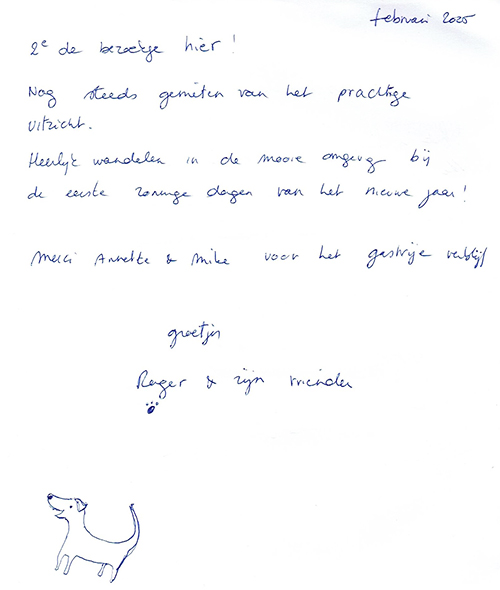 februari 2025
2e de bezoekje hier!
Nog steeds genieten van het prachtige
uitzicht.
Heerlijk wandelen in de mooie omgeving bij
de eerste zonnige dagen van het nieuwe jaar!
Merci Annette & Mike voor het gastvrije verblijf
groetjes
Roger & zijn vrienden